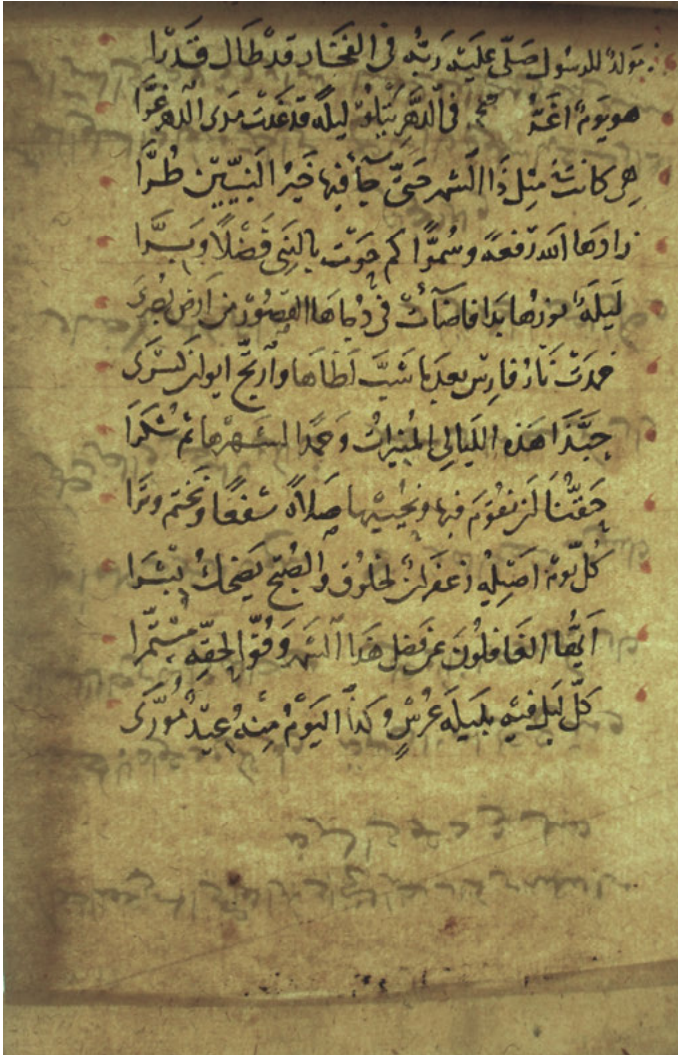 مولد للرسول صلّى عليه ربّه في الفخار قد طال قدرا
هو يوم اغرّ في الدّهر يتلوه ليلة قد غدت مدى الدهر غرّا
هي كانت مثل ذا الشهر حتّى جآء فيها خير النبيّين طرّا
زادها الله رفعة وسموّا كم حوت بالنبي فضلا وبرّا
ليلة نورها بدا فاضآت في دجاها القصور من ارض بصرى
خمدت نار فارس بعد ما شبّ لظاها وارتجّ ايوان كسرى
حبّذا هذه الليالي المنيرات وحمدا لشهرها ثم شكرا
حقّنا لن نقوم فيها ونحييها صلاة شفعا ونختم وترا
كلّ يوم اصيله زعفران الخلوق والصّبح يضحك بشرا
ايّها الغافلون عن فضل هذا الشهر وفّوا لحقّه مستمرّا
كلّ ليل فيه بليلة عرس وكذا اليوم منه عيد